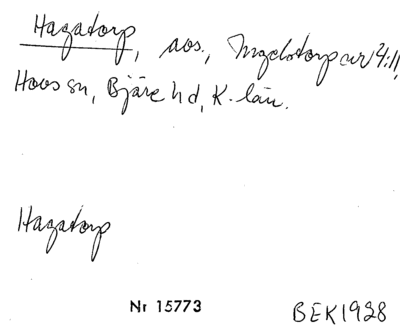 Hagatorp, aos., Ingelstorp nr 4:11,
Hoos sn, Bjäre hd, K. län.
Hagatorp
Nr 15773
BEK1928